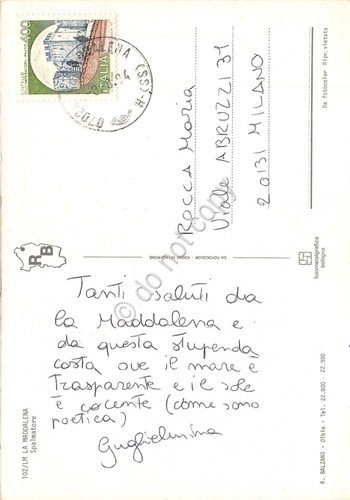 Tanti saluti da
la Maddalena e
da questa stupenda
costa ove il mare è
trasparente e il sole
è cocente (come sono
poetica!)
Guglielmina
ROCCA Maria
Viale ABRUZZI 31
20131 MILANO
400
ITALIA
102/LM LA MADDALENA
Spalmatore
RB
DA FOTOCOLOR - FOCOM RETRO-ROMB
fotocromaligrafica
bologna
R. BALZANO - Olbia - Tel. 22.800 - 22.900
Da fotocolor Ripr. vietata
© do not copy